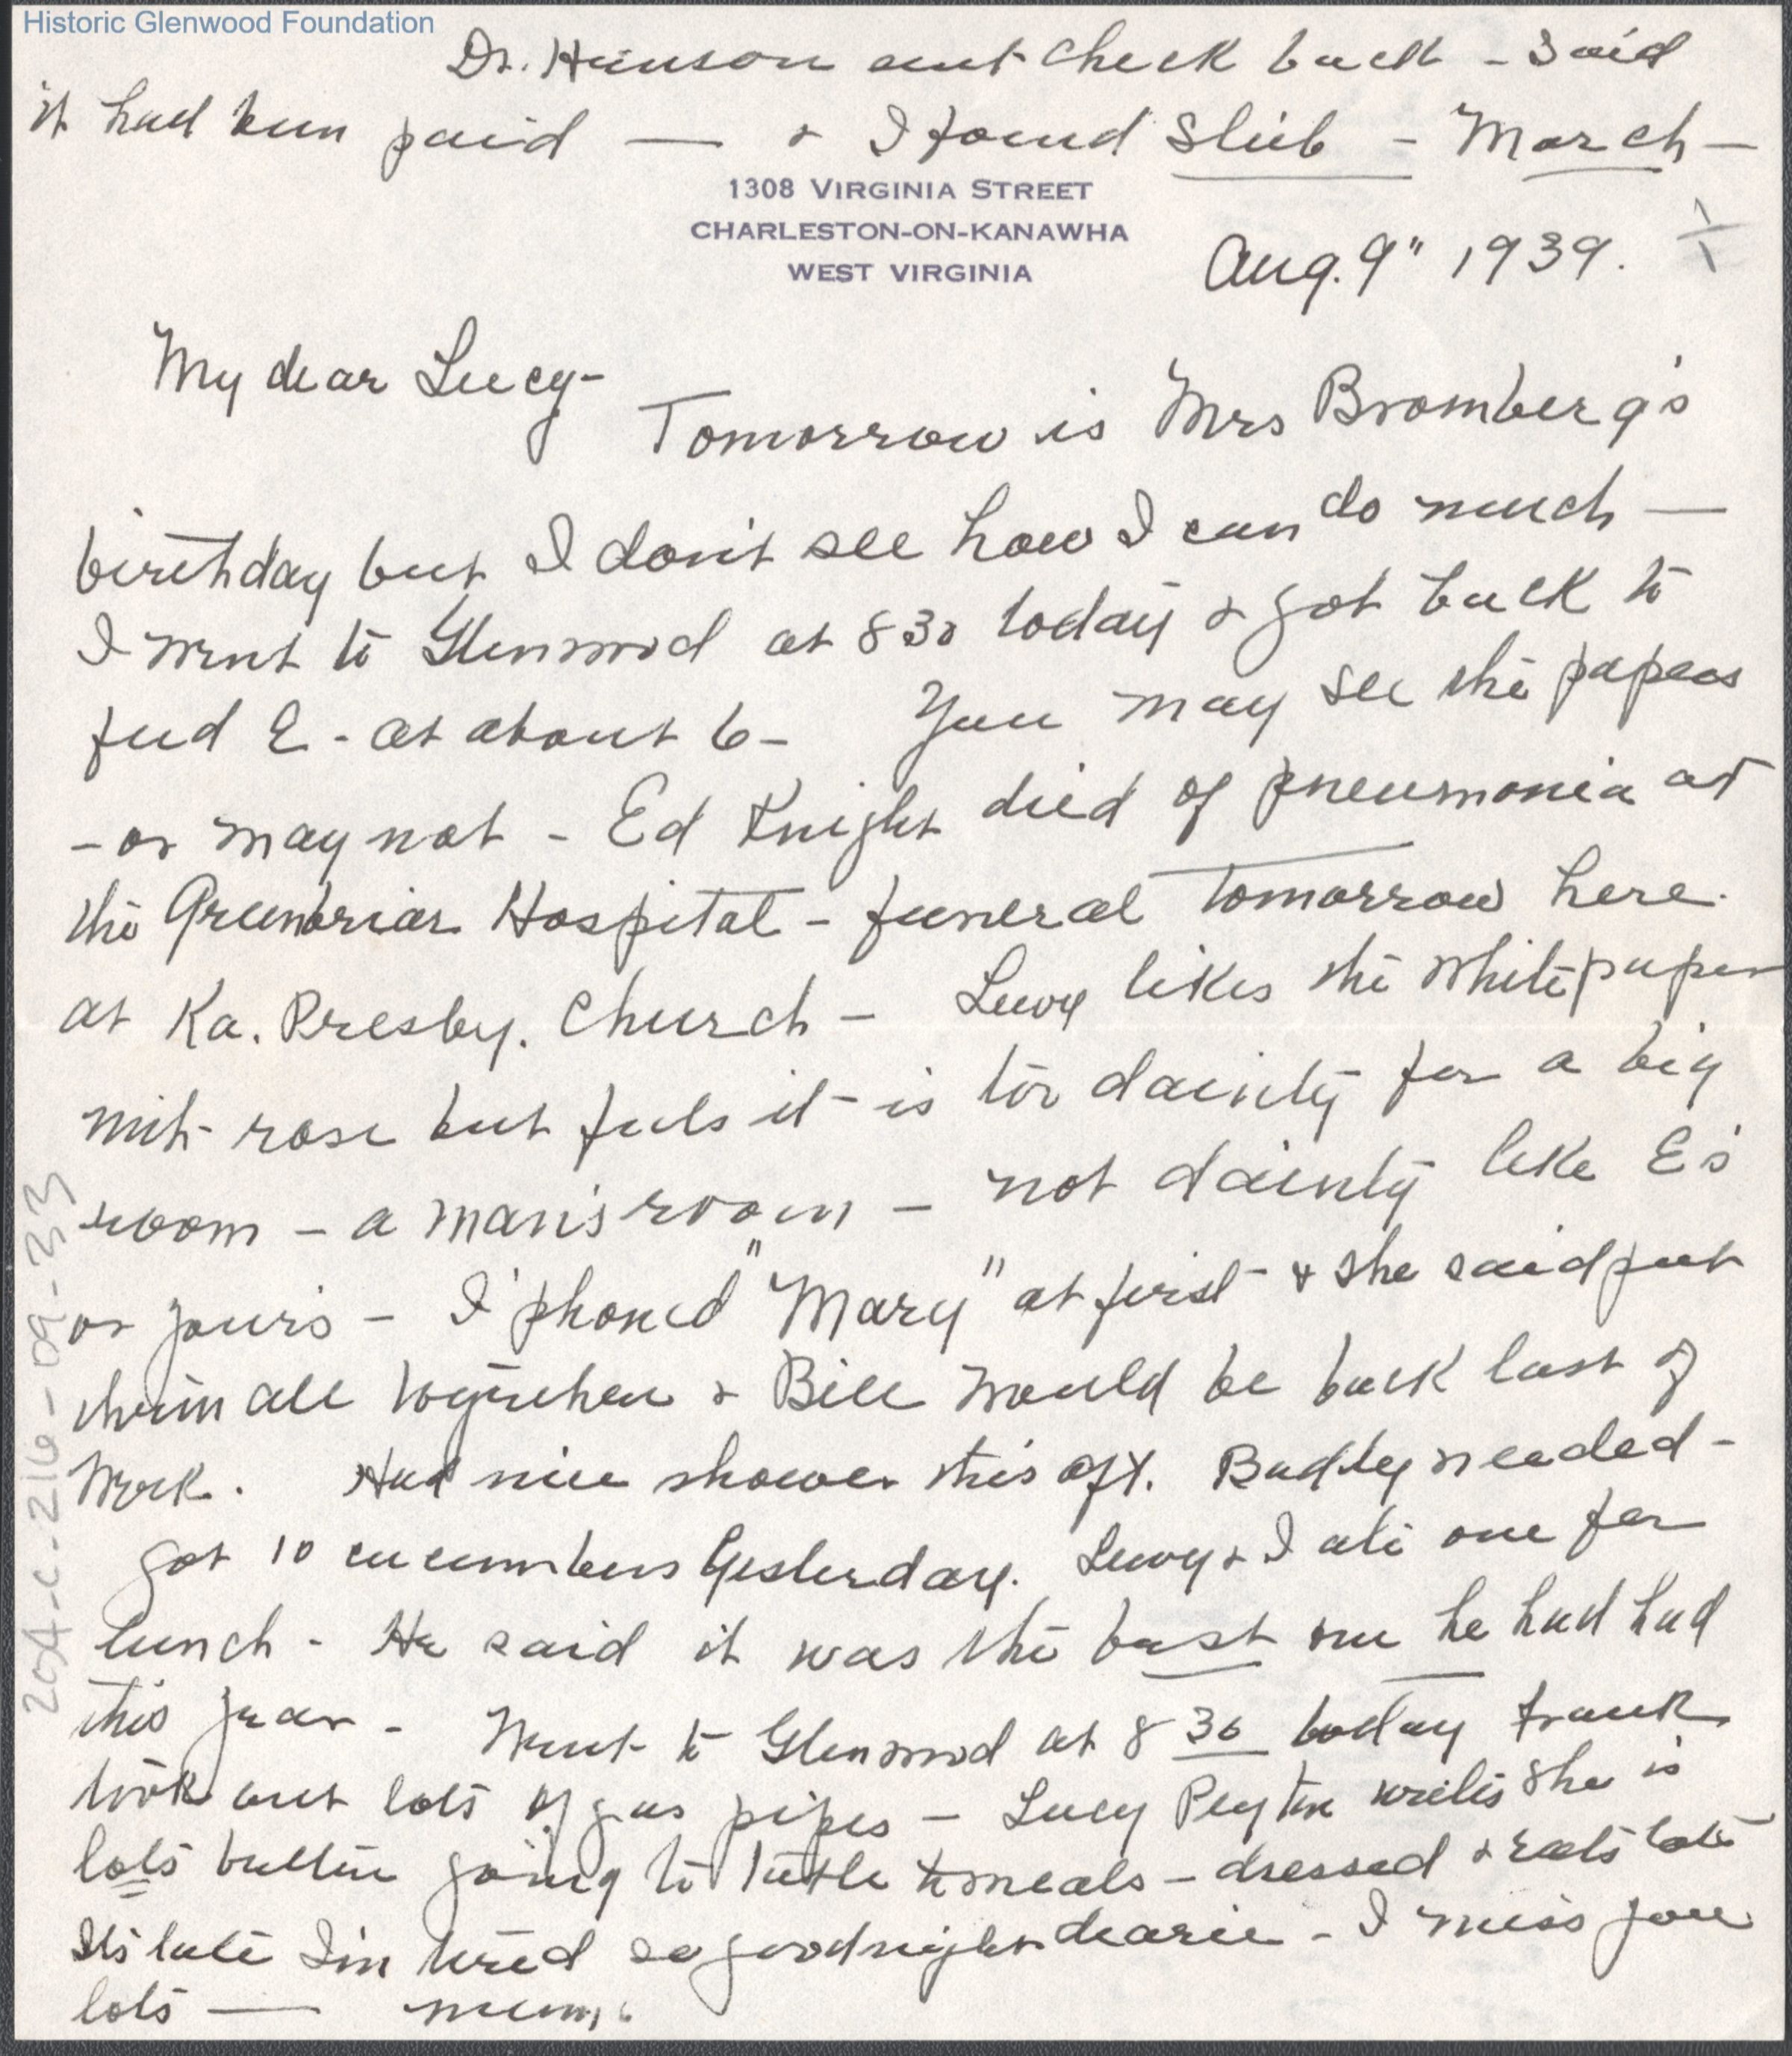 Historic Glenwood Foundation
Dr. Hanson sent check back - Said
it had been paid — & I found Stub - March —
1308 VIRGINIA STREET
CHARLESTON-ON-KANAWHA
WEST VIRGINIA
Aug. 9" 1939.
1/1
My dear Lucy-
Tomorrow is Mrs Bromberg's
birthday but I don't see how I can do much —
I went to Glenwood at 830 today & got back to
feed E - at about 6 - You may see the papers
- or may not - Ed Knight died of pneumonia at
the Greenbriar Hospital - funeral tomorrow here.
at Ka. Presby. Church - likes the white paper
with rose but feels it is too dainty for a big
room - a man's room - not dainty like E's
or yours - I 'phoned "Mary" at first & she said put
them all together & Bill would be back last of
week. Had nice shower this aft. Badly needed -
Got 10 cucumbers yesterday. & I ate one for
lunch - He said it was the best one he had had
this year - Went to Glenwood at 8 30 today Frank
took out lots of gas pipes - Lucy Peyton writes she is
lots better going to table to meals - dressed & eats lots
Its late I'm tired so goodnight dearie - I miss you
lots — mums
2014-c-216-09-33